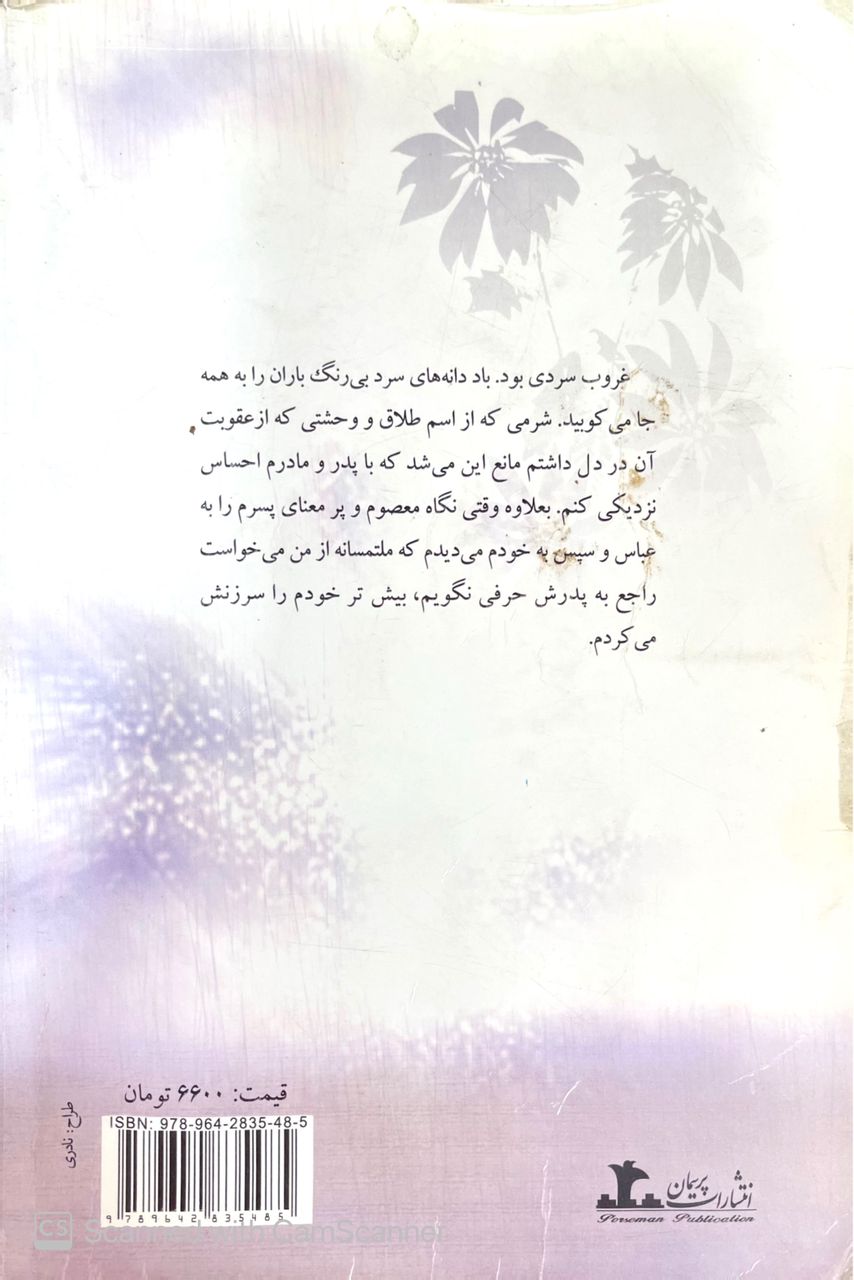 غروب سردی بود. باد دانه‌های سرد بی‌رنگ باران را به همه
جا می‌کوبید. شرمی که از اسم طلاق و وحشتی که از عقوبت
آن در دل داشتم مانع این می‌شد که با پدر و مادرم احساس
نزدیکی کنم. بعلاوه وقتی نگاه معصوم و پر معنای پسرم را به
عباس و سپس به خودم می‌دیدم که ملتمسانه از من می‌خواست
راجع به پدرش حرفی نگویم، بیش تر خودم را سرزنش
می‌کردم.
قیمت: ۶۶۰۰ تومان
ISBN: 978-964-2835-48-5
9 789642 835485
طراح: نادری
انتشارات پرسمان
Porseman Publication
CS Scanned with CamScanner